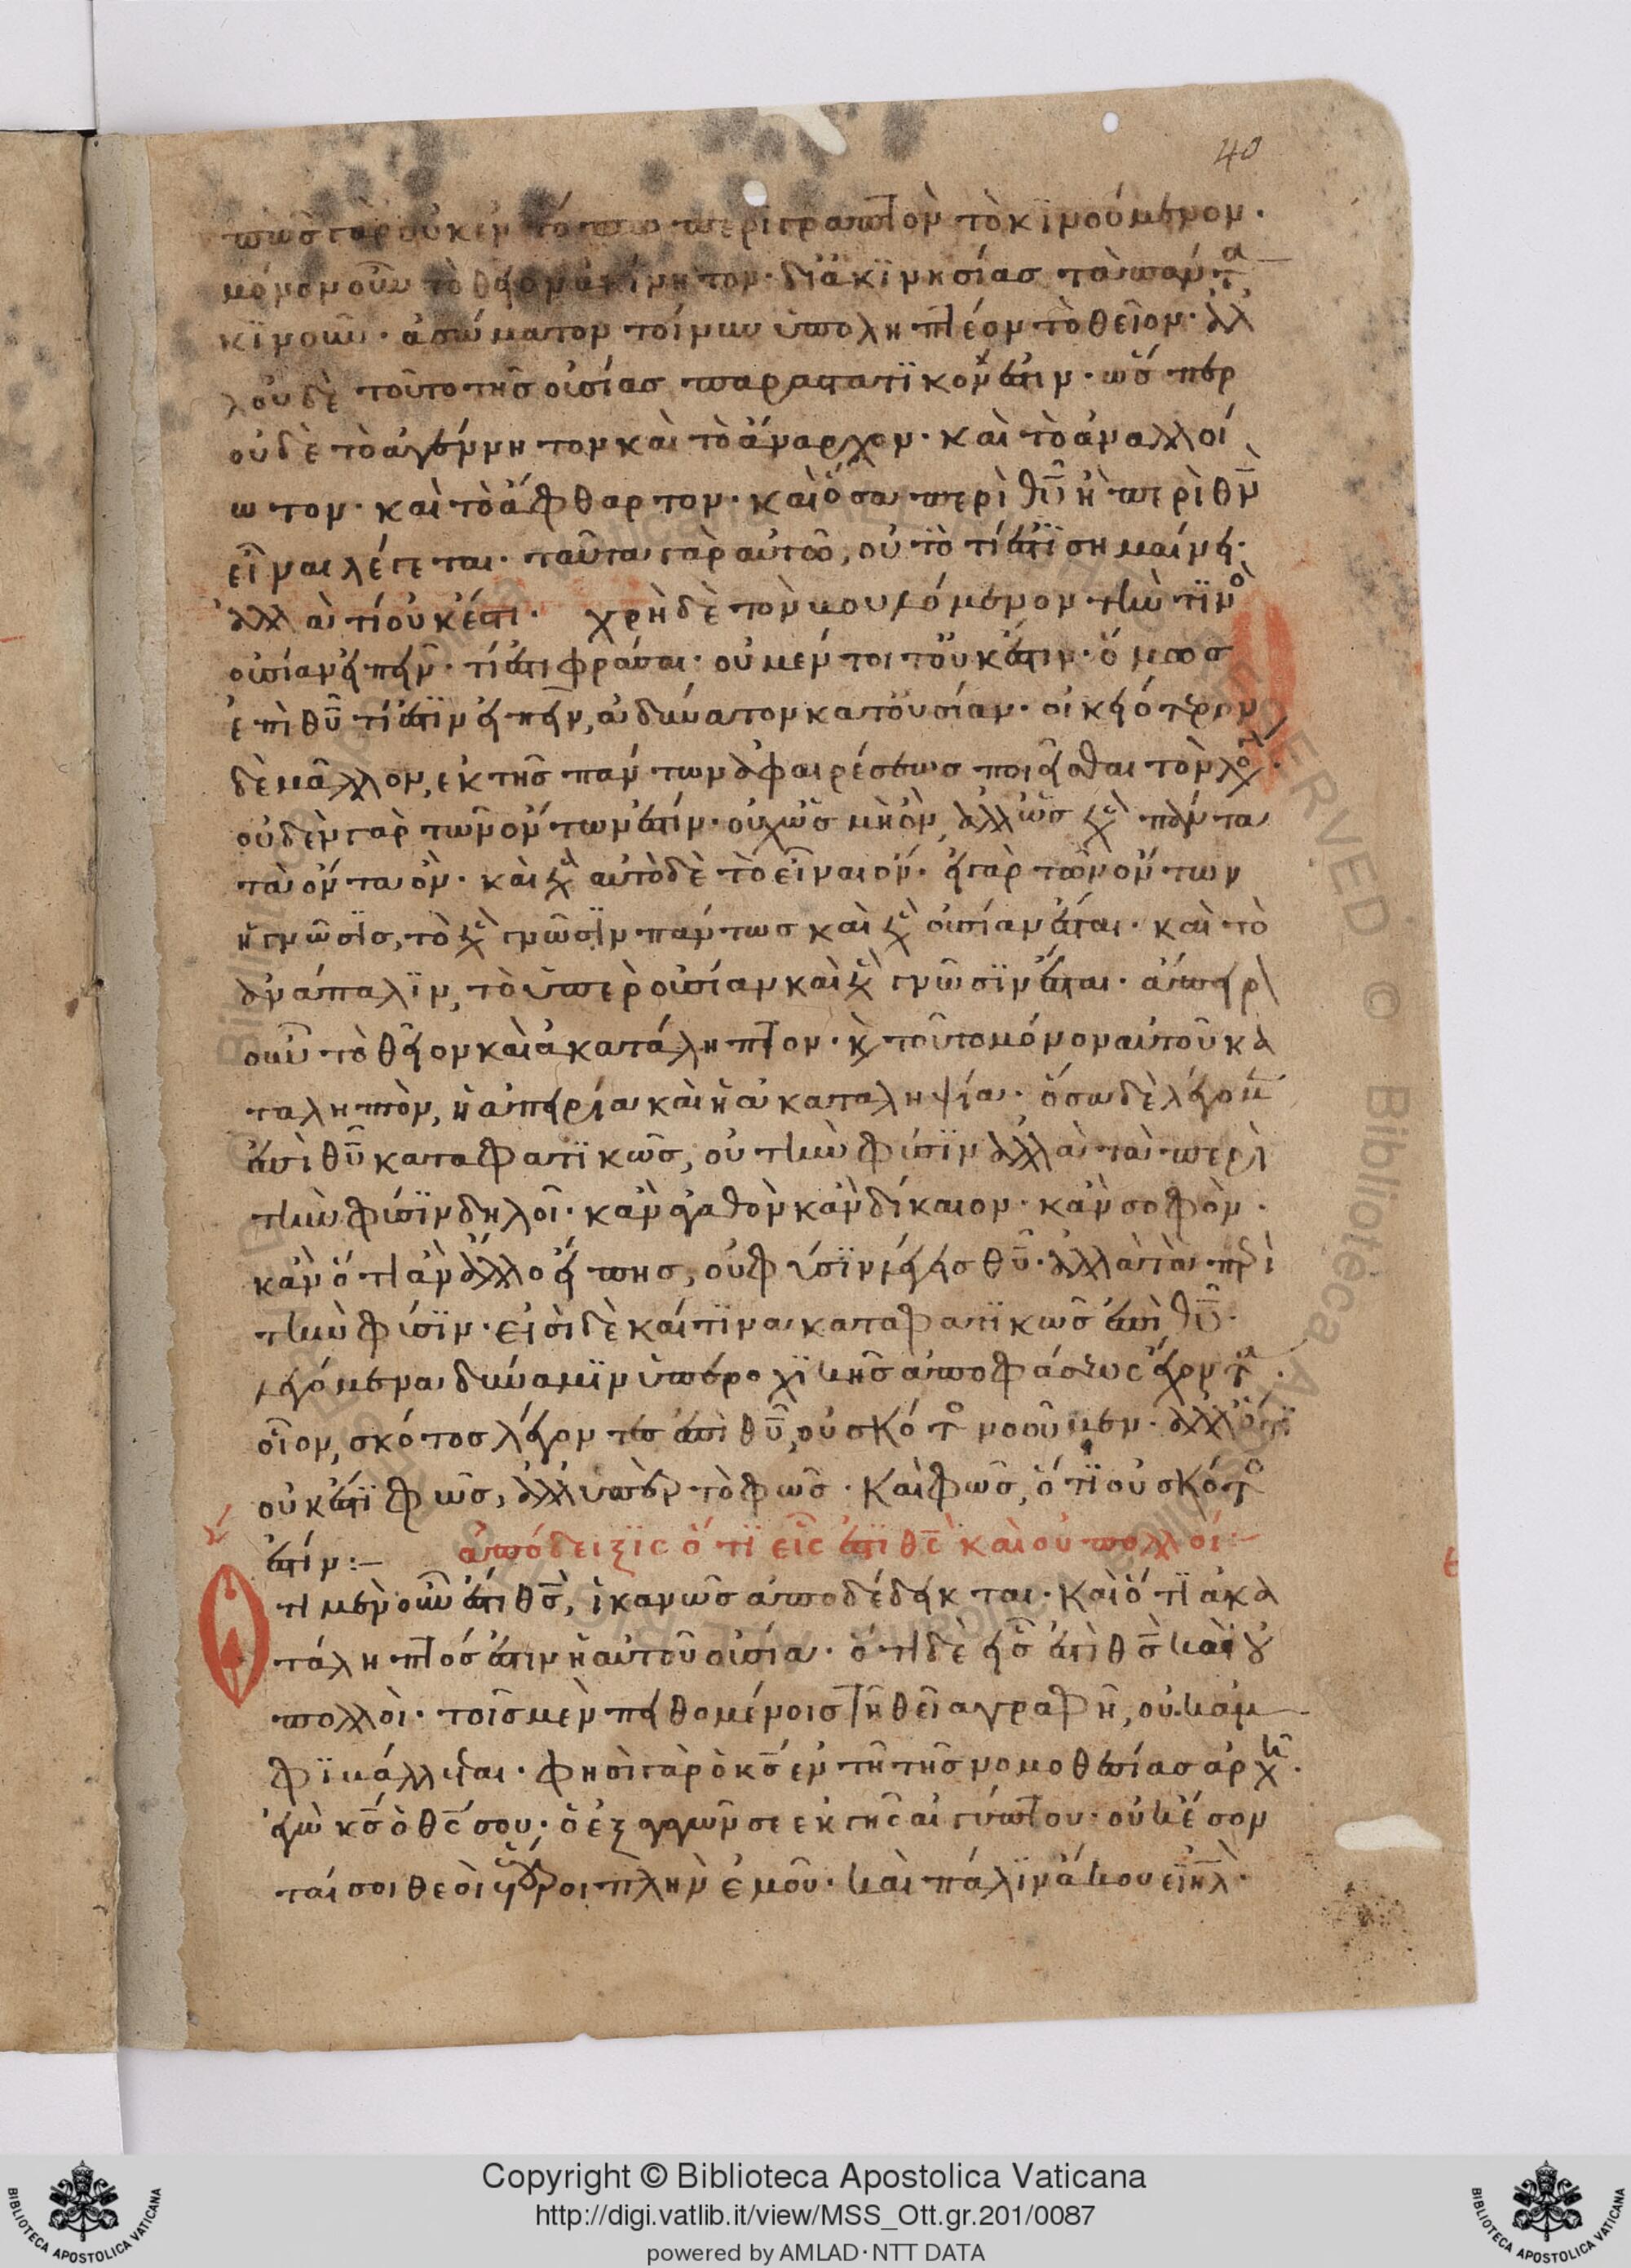 40
πῶς γὰρ οὐκ ἐν τόπω περιγραπτὸν τὸ κϊνούμενον·
μόνον οὖν τὸ θεῖον ἀκίνητον· δϊ ἀκϊνησίας τὰ πάντα
κϊνοῦν· ἀσώματον τοίνυν ὑποληπτέον τὸ θεῖον· ἀλ
λ οὐδὲ τοῦτο τῆς οὐσίας παραστατϊκόν ἐστιν· ὥσπερ
οὐδὲ τὸ ἀγέννητον καὶ τὸ ἄναρχον· καὶ τὸ ἀναλλοί
ωτον· καὶ τὸ ἄφθαρτον· καὶ ὅσα περὶ θῦ ἢ περὶ θν
εἶναι λέγεται· ταῦτα γὰρ αὐτῶ, οὐ τὸ τί ἐστϊ σημαίνει·
ἀλλὰ τί οὐκ ἔστι· χρὴ δὲ τὸν βουλόμενον τὴν τϊνὸς
οὐσίαν εἰπεῖν· τί ἐστι φράσαι· οὐ μέντοι τί οὐκ ἔστιν· ὅμως
ἐπὶ θῦ τί ἐστϊν εἰπεῖν, ἀδύνατον κατ οὐσίαν· οἰκειότερον
δὲ μᾶλλον, ἐκ τῆς πάντων ἀφαιρέσεως ποιεῖσθαι τὸν λόγ·
οὐδὲν γὰρ τῶν ὄντων ἐστίν· οὐχ ὡς μὴ ὄν, ἀλλ ὡς ὑπὲρ πάντα
τὰ ὄντα ὄν· καὶ ὑπὲρ αὐτὸ δὲ τὸ εἶναι ὄν· εἰ γὰρ τῶν ὄντων
ἡ γνῶσϊς, τὸ ὑπὲρ γνῶσϊν πάντως καὶ ὑπὲρ οὐσίαν ἔσται· καὶ τὸ
ἀνάπαλϊν, τὸ ὑπὲρ οὐσίαν καὶ ὑπὲρ γνῶσϊν ἔσται· ἄπειρ
οὖν τὸ θεῖον καὶ ἀκατάληπτον· κ τοῦτο μόνον αὐτοῦ κα
ταληπτόν, ἡ ἀπειρία καὶ ἡ ἀκαταληψία· ὅσα δὲ λέγομ
ἐπὶ θῦ καταφατϊκῶς, οὐ τὴν φύσϊν ἀλλὰ τὰ περὶ
τὴν φύσϊν δηλοῖ· κἂν ἀγαθὸν κἂν δίκαιον· κἂν σοφὸν·
κἂν ὅ τι ἂν ἄλλο εἴπης, οὐ φύσϊν λέγεις θῦ· ἀλλὰ τὰ περὶ
τὴν φύσϊν· εἰσὶ δὲ καί τϊνα καταφατϊκῶς ἐπὶ θῦ·
λεγόμενα δύναμϊν ὑπεροχϊκῆς ἀποφάσεως ἔχοντα·
οἷον, σκότος λέγοντες ἐπὶ θῦ, οὐ σκότος νοοῦμεν· ἀλλ ὅτϊ
οὐκ ἔστϊ φῶς, ἀλλ ὑπὲρ τὸ φῶς· καὶ φῶς, ὅτϊ οὐ σκότος
ἐστίν:–   ἀπόδειξϊς ὅτϊ εἷς ἐστϊ θς καὶ οὐ πολλοί:–
Ὅτι μὲν οὖν ἐστι θς, ἱκανῶς ἀποδέδεικται· καὶ ὅτϊ ἀκα
τάληπτός ἐστιν ἡ αὐτοῦ οὐσία· ὅτι δὲ εἷς ἐστὶ θς καὶ οὐ
πολλοὶ· τοῖς μὲν πειθομένοις τῆ θεία γραφῆ, οὐκ ἀμ
φϊβάλλεται· φησὶ γὰρ ὁ κς ἐν τῆ τῆς νομοθεσίας ἀρχῆ·
ἐγὼ κς ὁ θς σου· ὁ ἐξαγαγών σε ἐκ γῆς αἰγύπτου· οὐκ ἔσον
ταί σοι θεοὶ ἕτεροι πλὴν ἐμοῦ· καὶ πάλϊν ἄκουε ϊηλ·
Copyright © Biblioteca Apostolica Vaticana
http://digi.vatlib.it/view/MSS_Ott.gr.201/0087
powered by AMLAD·NTT DATA
BIBLIOTECA APOSTOLICA VATICANA
BIBLIOTECA APOSTOLICA VATICANA